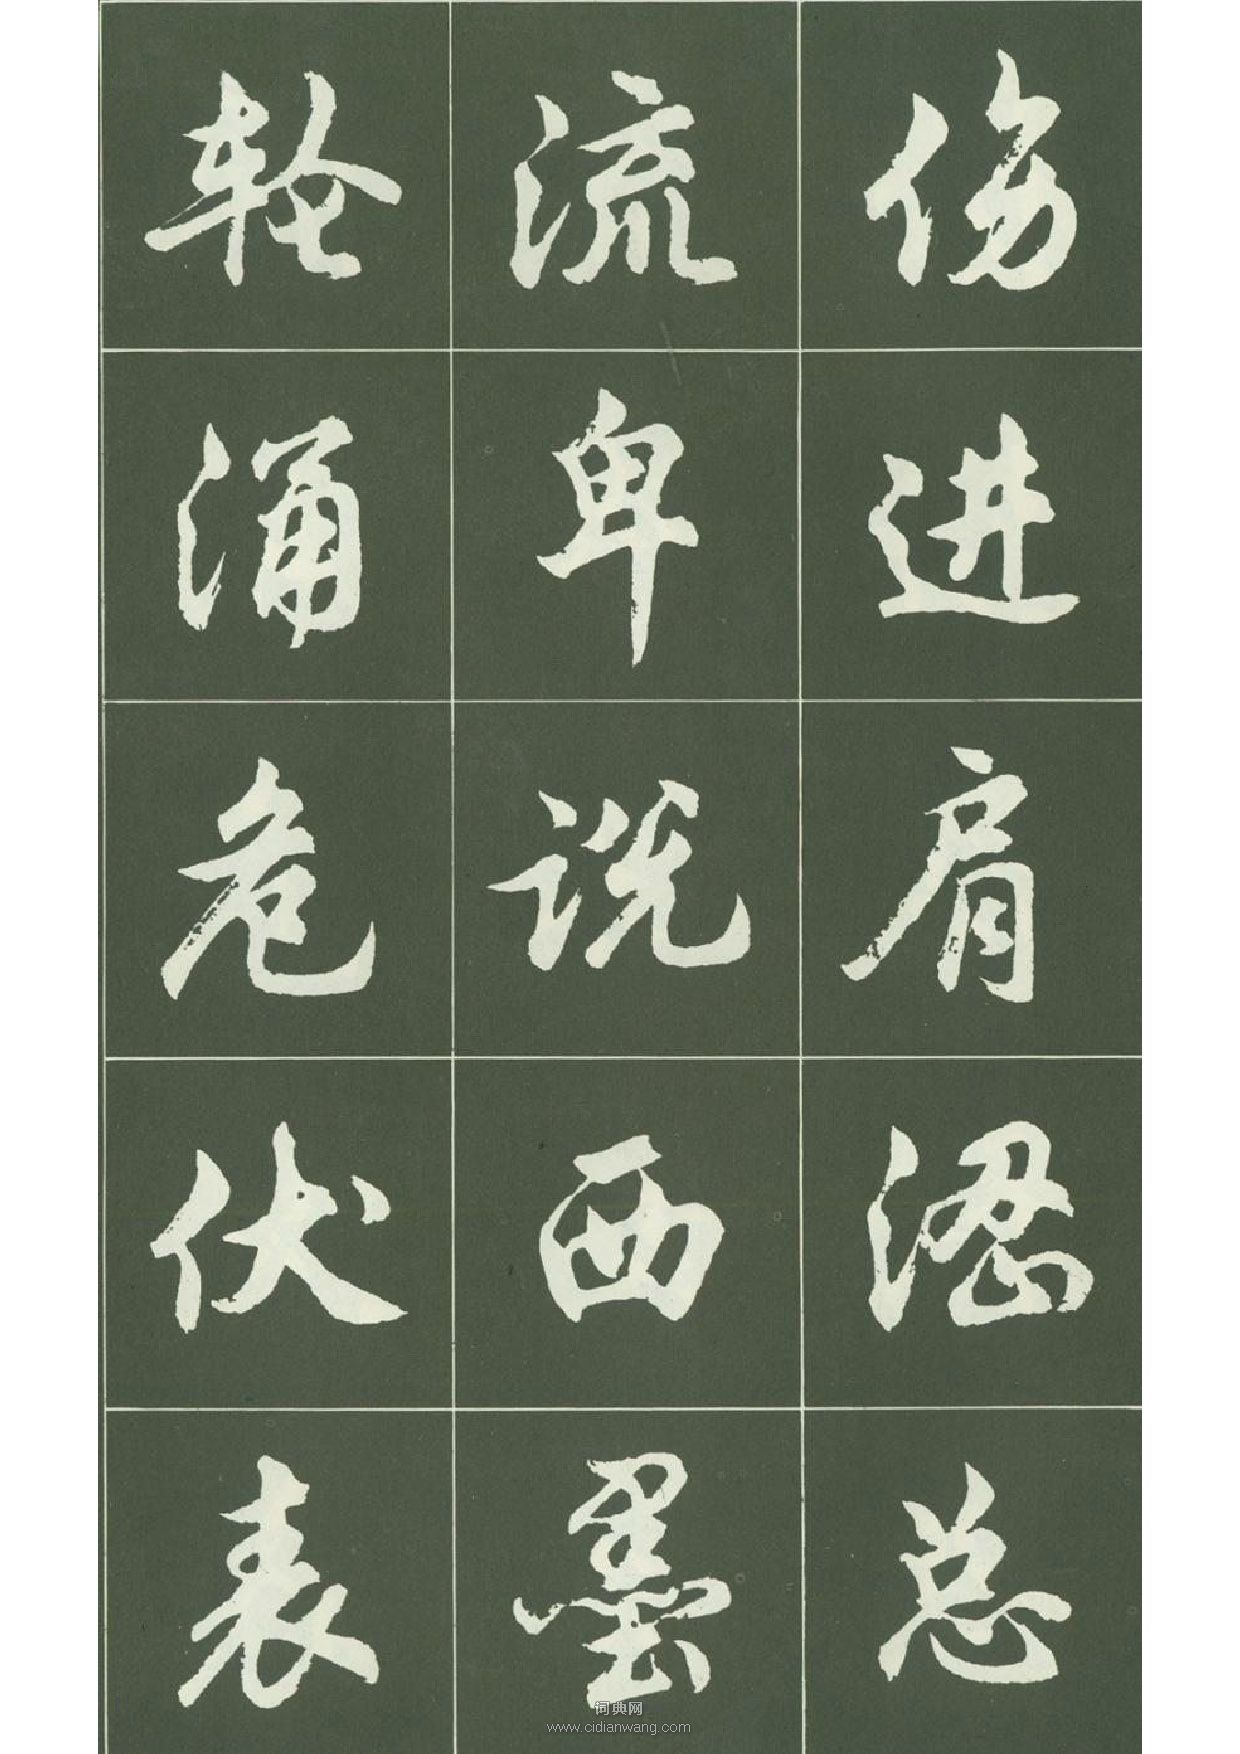 伤进肩总
流卑说西墨
轮涌危伏表
词典网
www.cidianwang.com